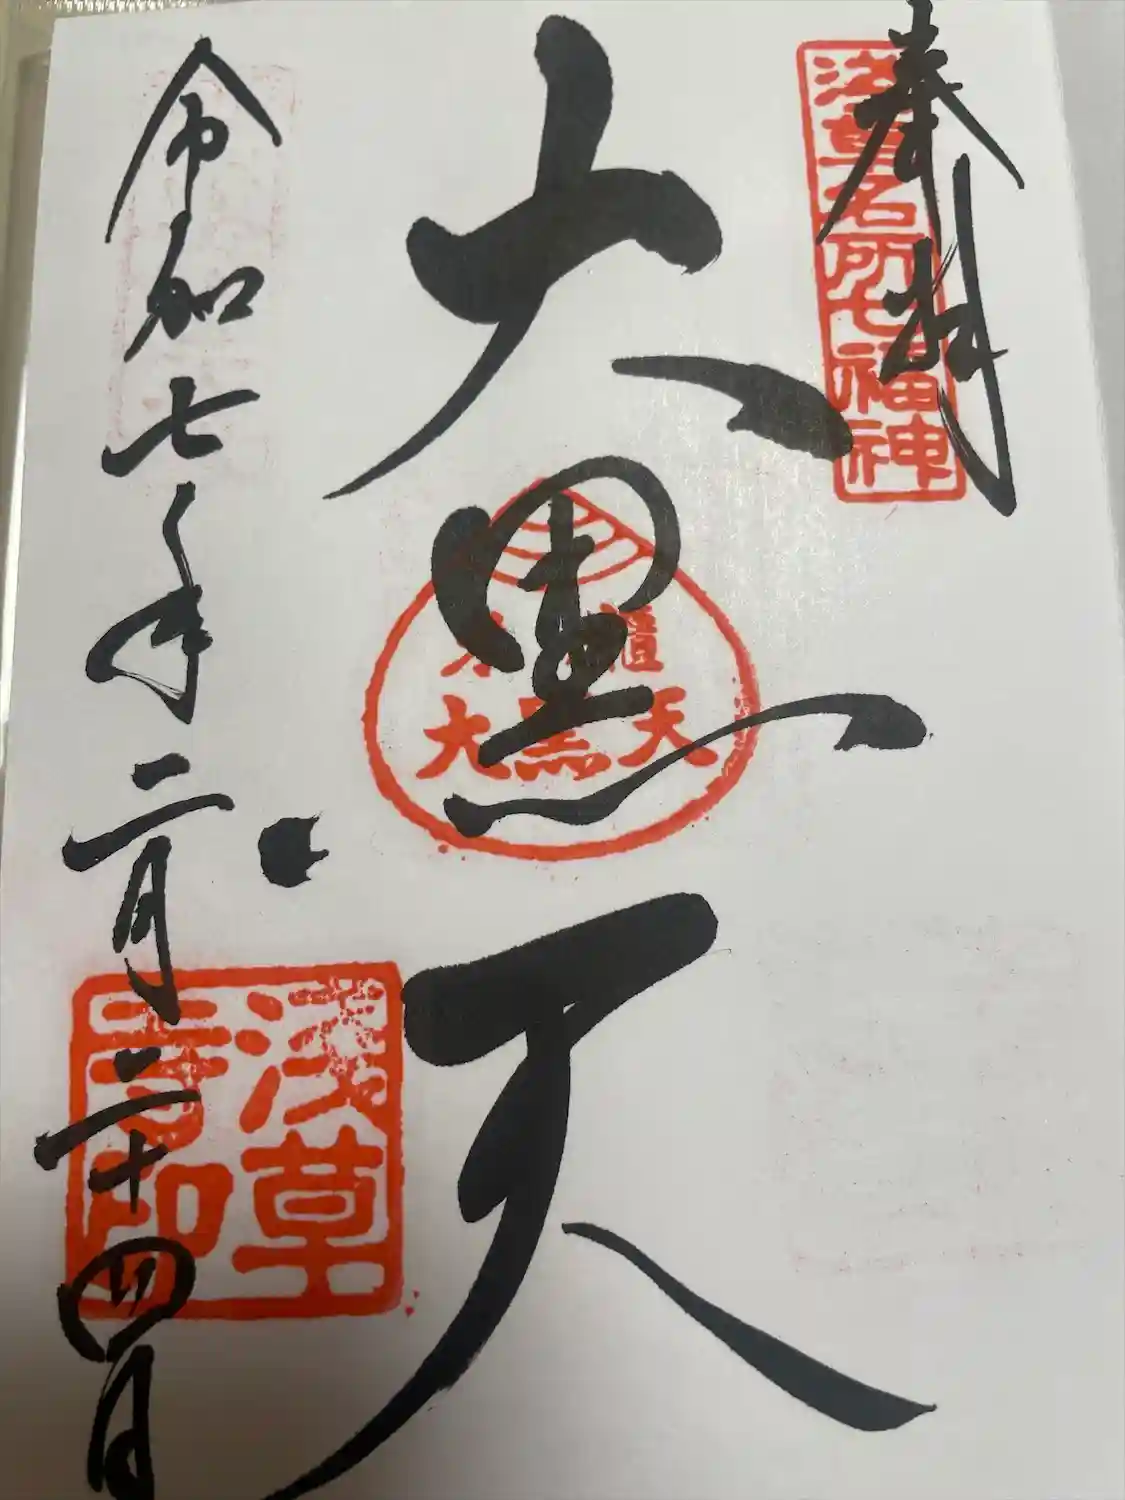 奉拝
浅草名所七福神
大黒天
大黒天
令和七年二月二十四日
浅草
寺印